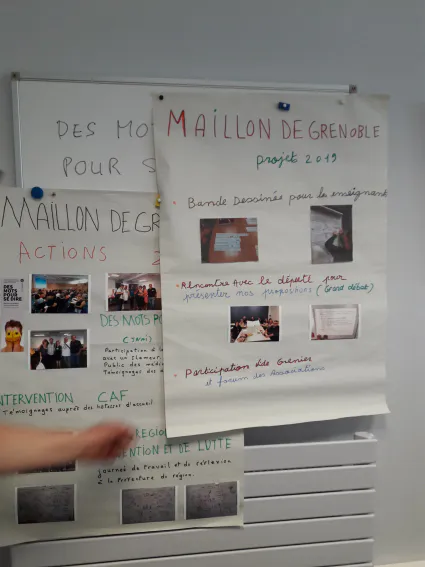 DES MOT
POUR S
MAILLON DE GRENOBLE
projet 2019
Bande Dessinées pour les enseignant
Rencontre Avec le député pour
présenter nos propositions (Grand débat)
Participation
et forum des Associations
MAILLON DE GR
ACTIONS 2
DES MOTS POUR SE DIRE
DES MOTS PO
(Jani)
Participation à
avec un slameur
Public des méd
Témoignages des
INTERVENTION CAF
Témoignages auprès des hôtesses d'accueil
REGION
ENTION ET DE LUTTE
journée de travail et de réflexion
à la Préfecture de région.